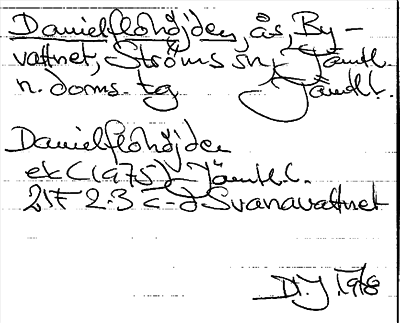 Danielflohöjden, ås, By-
vattnet, Ströms sn, Jämtl.
n. doms. tg Jämtl.
Danielflohöjden
ek C (1975) Jämtl. l.
21F 2-3 c-d Svanavattnet
D.J. 1978